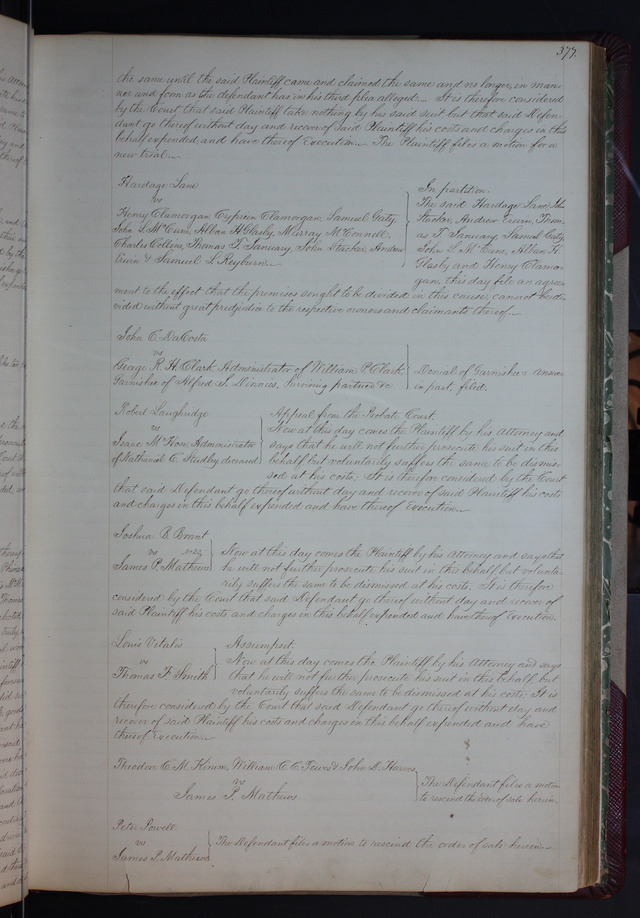 377.
the same until the said Plaintiff came and claimed the same and no longer, in man-
ner and form as the defendant has in his third plea alleged. It is therefore considered
by the Court that said Plaintiff take nothing by his said suit but that said Defen-
dant go thereof without day and recover of said Plaintiff his costs and charges in this
behalf expended, and have thereof Execution. The Plaintiff files a motion for a
new trial.
Hardage Lane
vs
Henry Clamorgan, Cyprian Clamorgan, Samuel Gaty,
John S. McCune, Alban H Glasby, Murray McConnell,
Charles Collins, Thomas T. January, John Stacker, Andrew
Erwin & Samuel L. Reyburn.
In partition.
The said Hardage Lane, John
Stacker, Andrew Erwin, Thom-
as T January, Samuel Gaty,
John S. McCune, Alban H.
Glasby and Henry Clamor-
gan, this day file an agree-
ment to the effect that the premises sought to be divided in this cause, cannot be di-
vided without great predjudice to the respective owners and claimants thereof.
John C. DaCosta
vs
George R. H. Clark Administrator of William P. Clark,
Garnishee of Alfred S. Dinnies, Surviving partner &c
Denial of Garnishee's answer
in part, filed.
Robert Laughridge
vs
Isaac McHose, Administrator
of Nathanial C. Steidley deceased
Appeal from the Probate Court.
Now at this day comes the Plaintiff by his Attorney and
says that he will not further prosecute his suit in this
behalf but voluntarily suffers the same to be dismis-
sed at his costs; It is therefore considered by the Court
that said Defendant go thereof without day and recover of said Plaintiff his costs
and charges in this behalf expended and have thereof Execution.
Joshua B. Brant
vs
James P. Mathews
Now at this day comes the Plaintiff by his Attorney and says that
he will not further prosecute his suit in this behalf but volunta-
rily suffers the same to be dismissed at his costs. It is therefore
considered by the Court that said Defendant go thereof without day and recover of
said Plaintiff his costs and charges in this behalf expended and have thereof Execution.
Louis Vitalis
vs
Thomas F. Smith
Assumpsit
Now at this day comes the Plaintiff by his Attorney and says
that he will not further prosecute his suit in this behalf, but
voluntarily suffers the same to be dismissed at his costs; It is
therefore considered by the Court that said Defendant go thereof without day and
recover of said Plaintiff his costs and charges in this behalf expended and have
thereof Execution.
Theodore C. M. Kimm, William C. C. Tewes & John D. Hawes
vs
James P. Mathews
The Defendant files a motion
to rescind the order of sale herein.
Peter Powell
vs
James P. Mathews
The Defendant files a motion to rescind the order of sale herein.